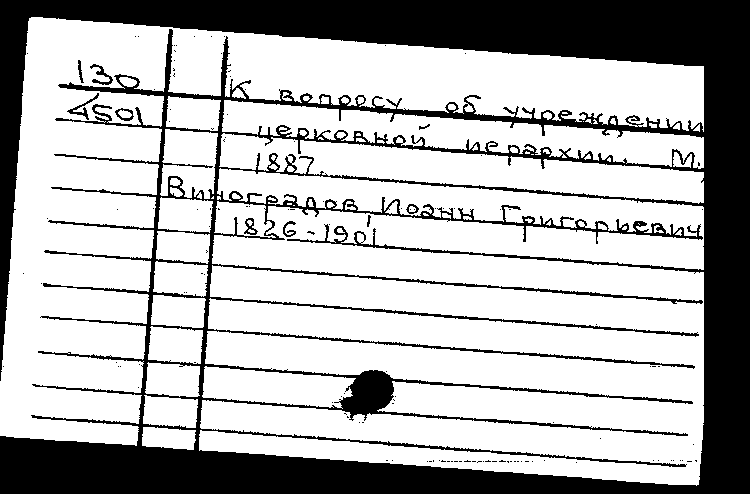 130
4501
К вопросу об учреждении
церковной иерархии. М.,
1887.
Виноградов, Иоанн Григорьевич
1826-1901.